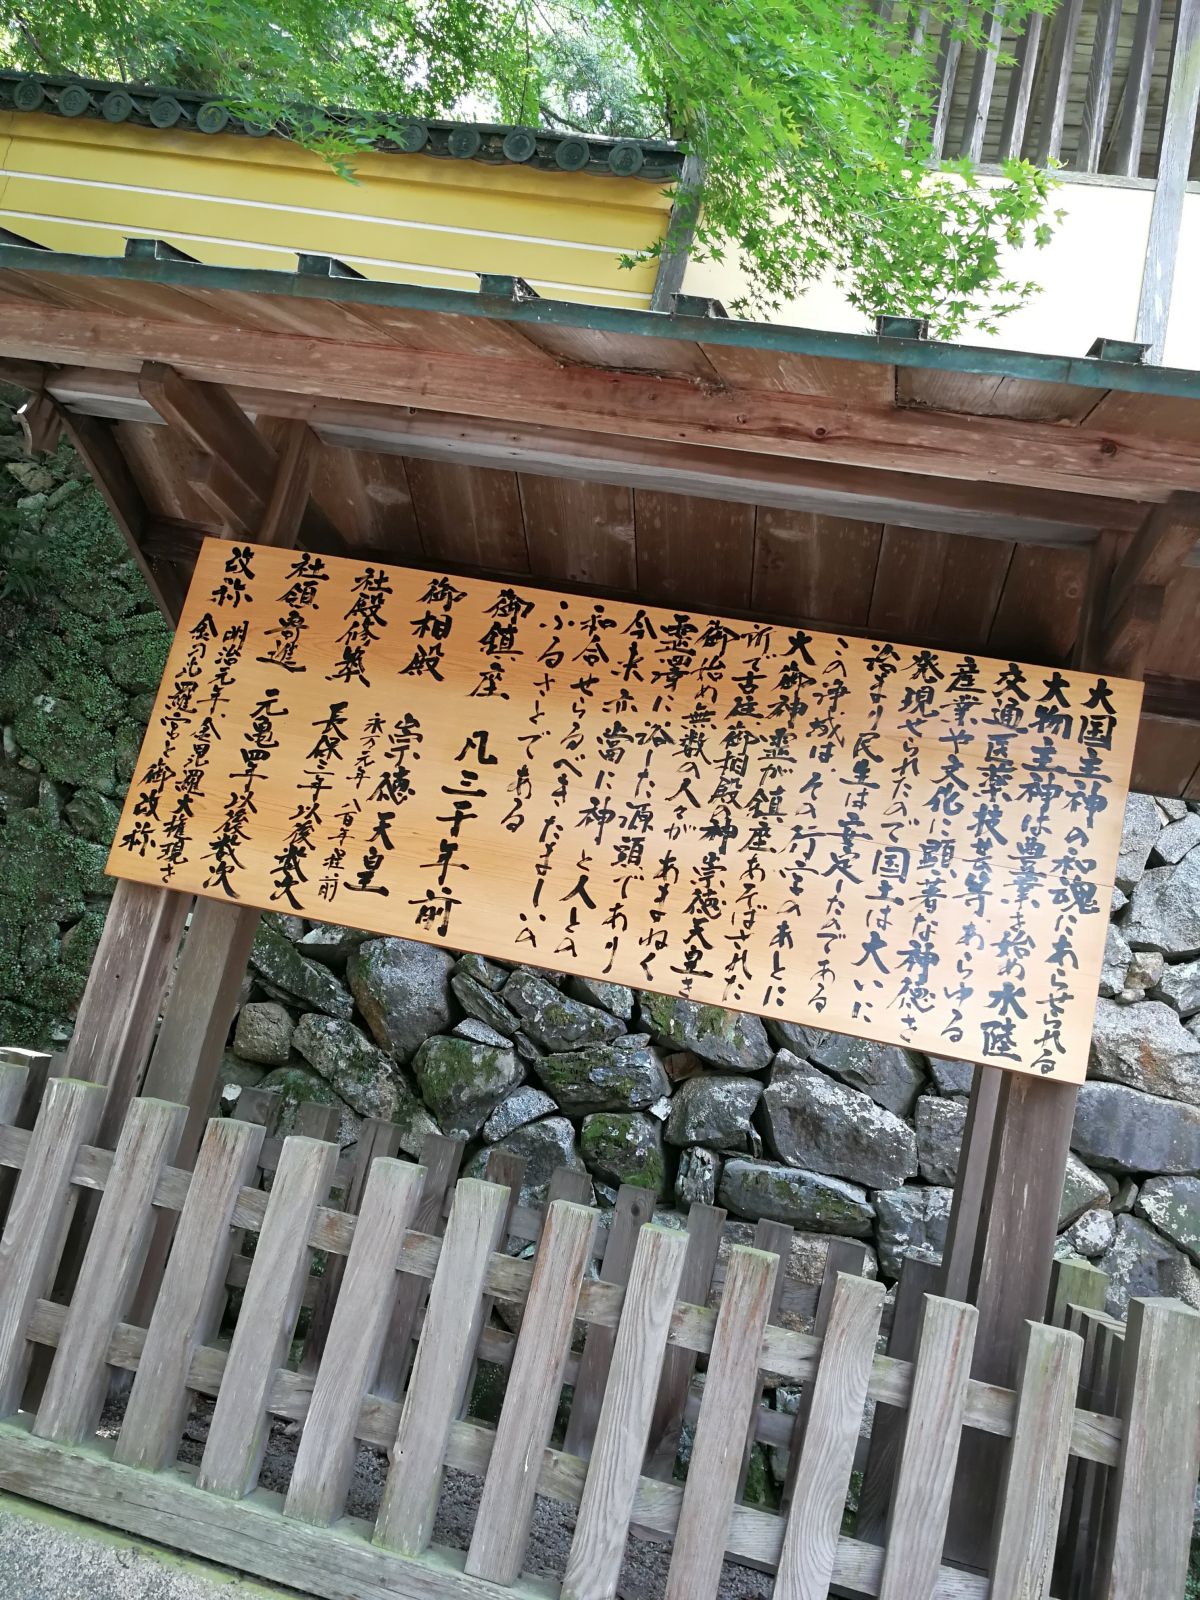 大国主神の和魂にあらせられる
大物主神は豊業を始め水陸
交通医薬技芸等、あらゆる
産業や文化に顕著な神徳を
発現せられたので国土は大いに
治まり民生は安定したのである
この浄域は、その行宮のあとに
大御神霊が鎮座あそばされた
所で古往御相殿の神崇徳天皇を
御始め無数の人々があまねく
霊澤に浴した源頭であり
今来亦当に神と人との
和合せらるべきたましいの
ふるさとである
御鎮座 凡三千年前
御相殿 崇徳天皇
永万元年 八百年程前
社殿修築 長保三年以後数次
社領寄進 元亀四年以後数次
改称 明治元年、金毘羅大権現を
金刀比羅宮と御改称